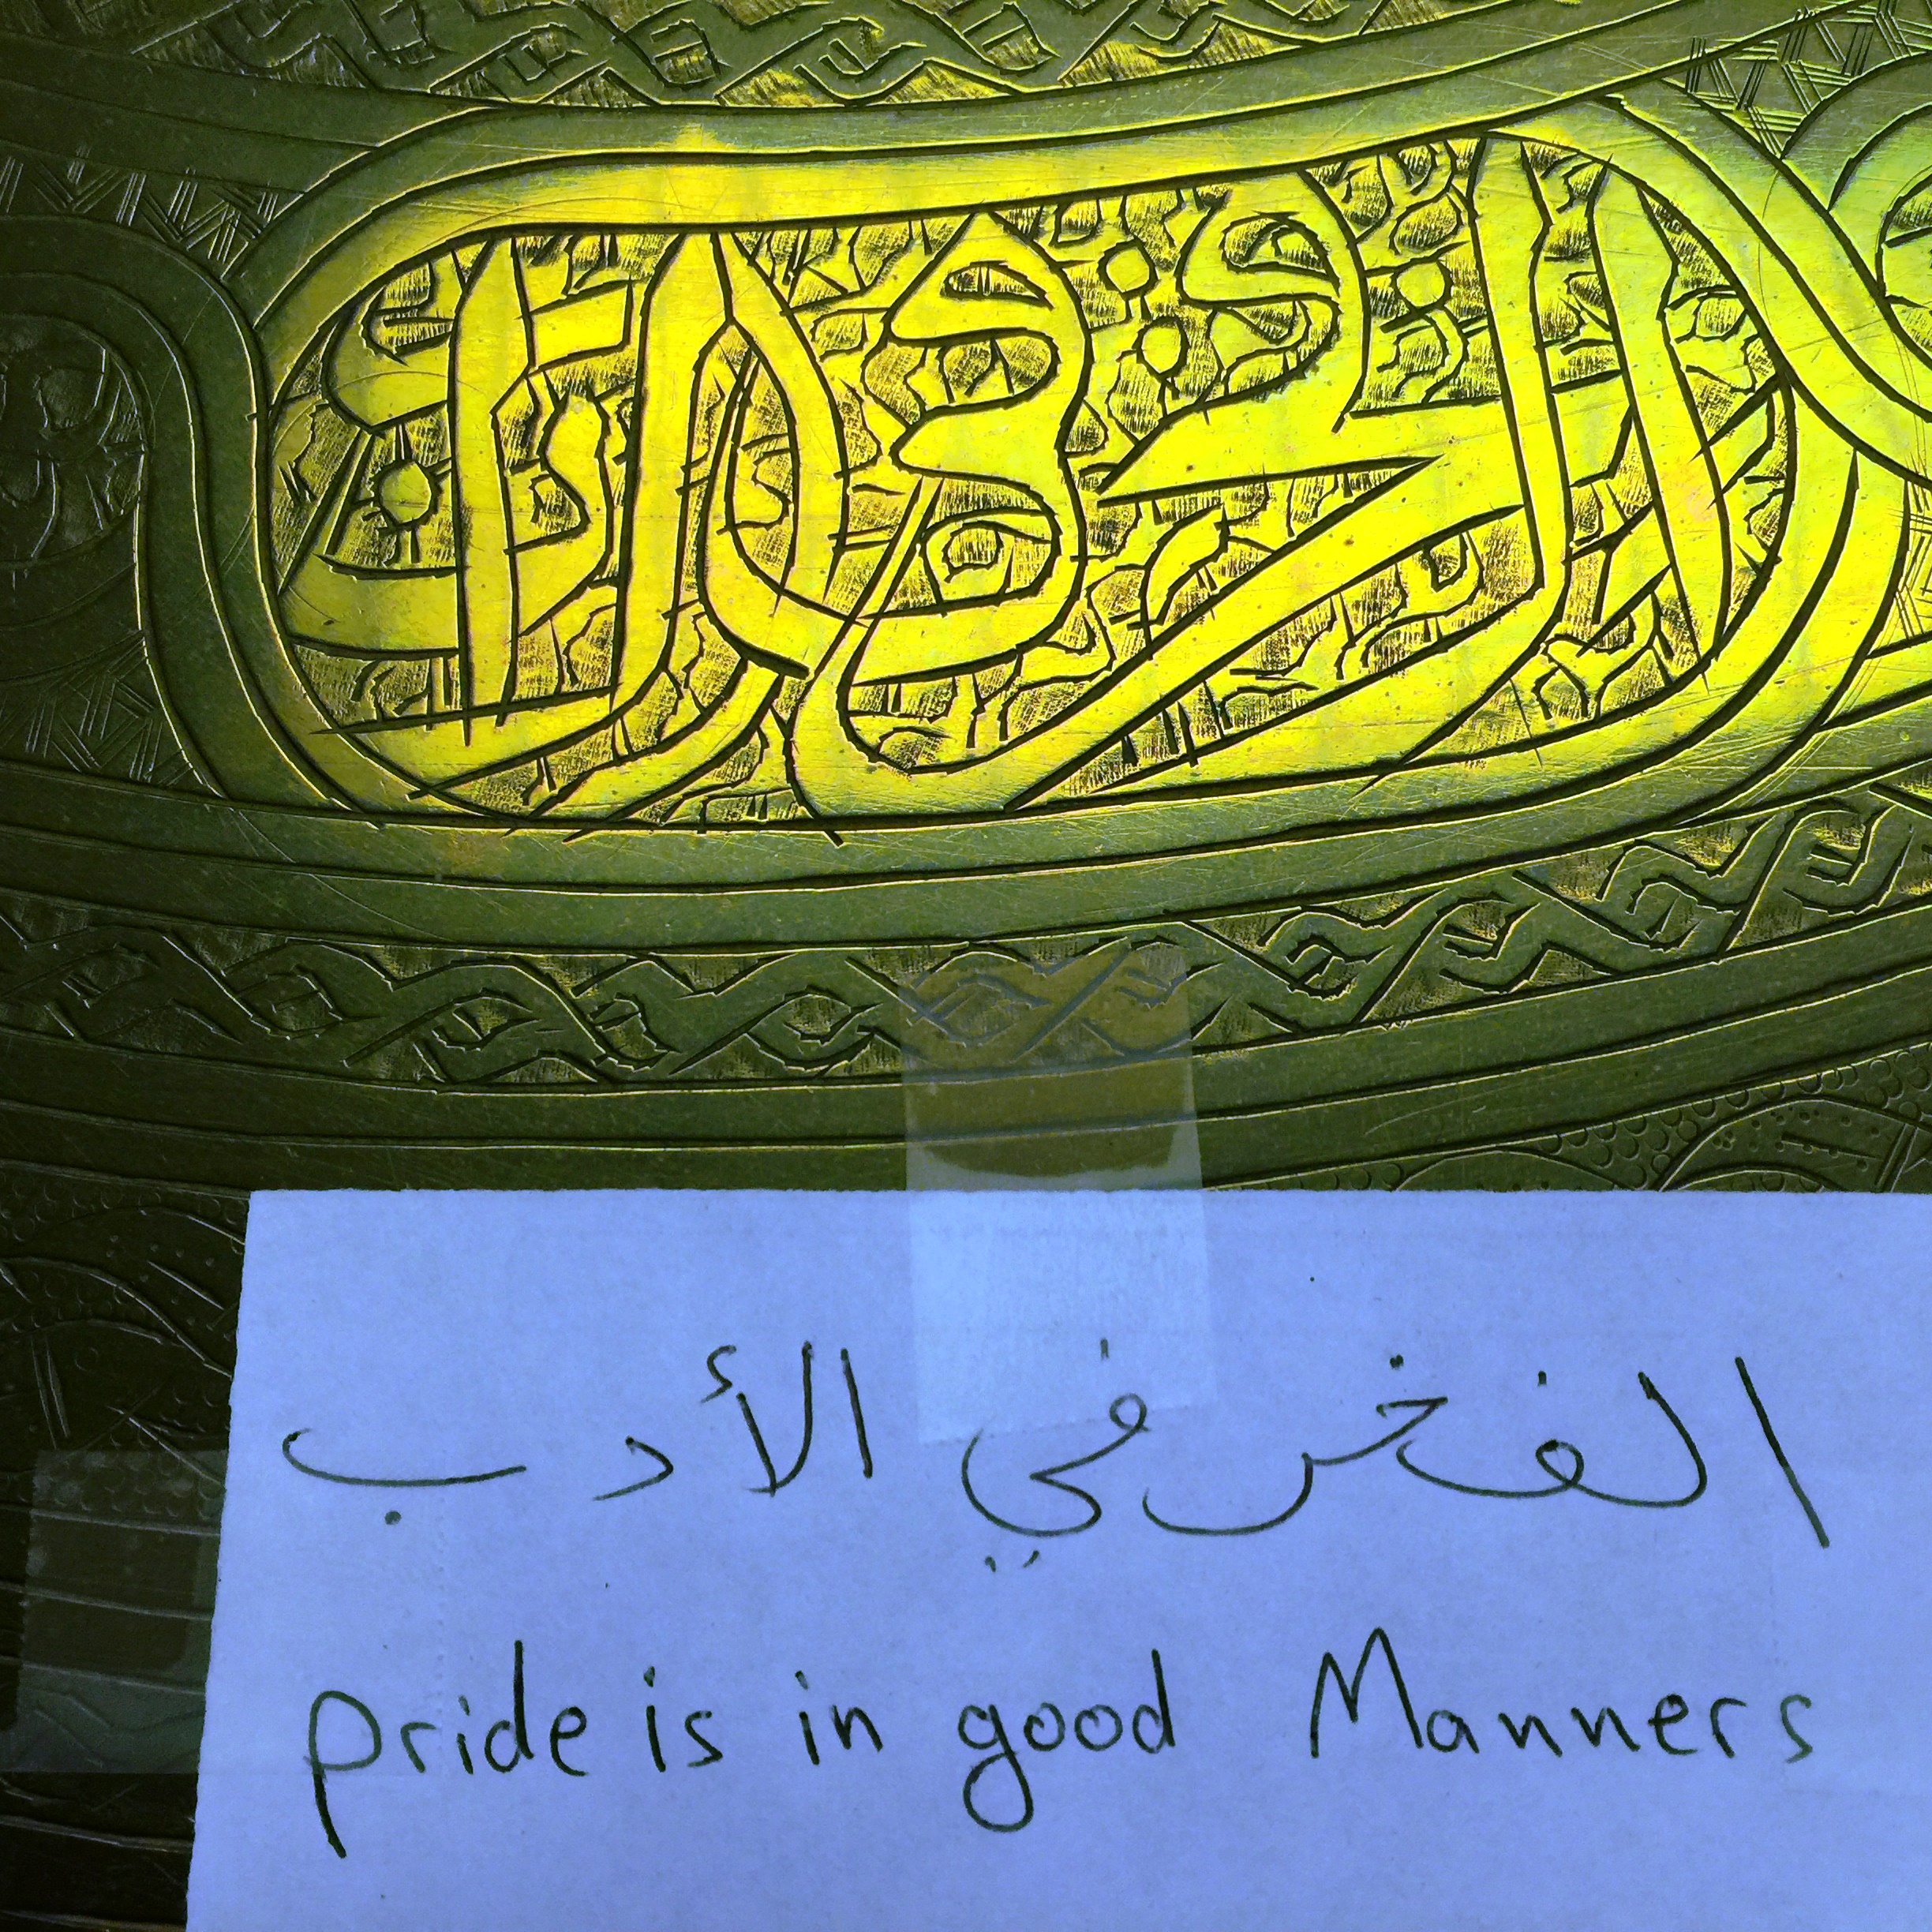 الفخر في الأدب
الفخر في الأدب
pride is in good Manners